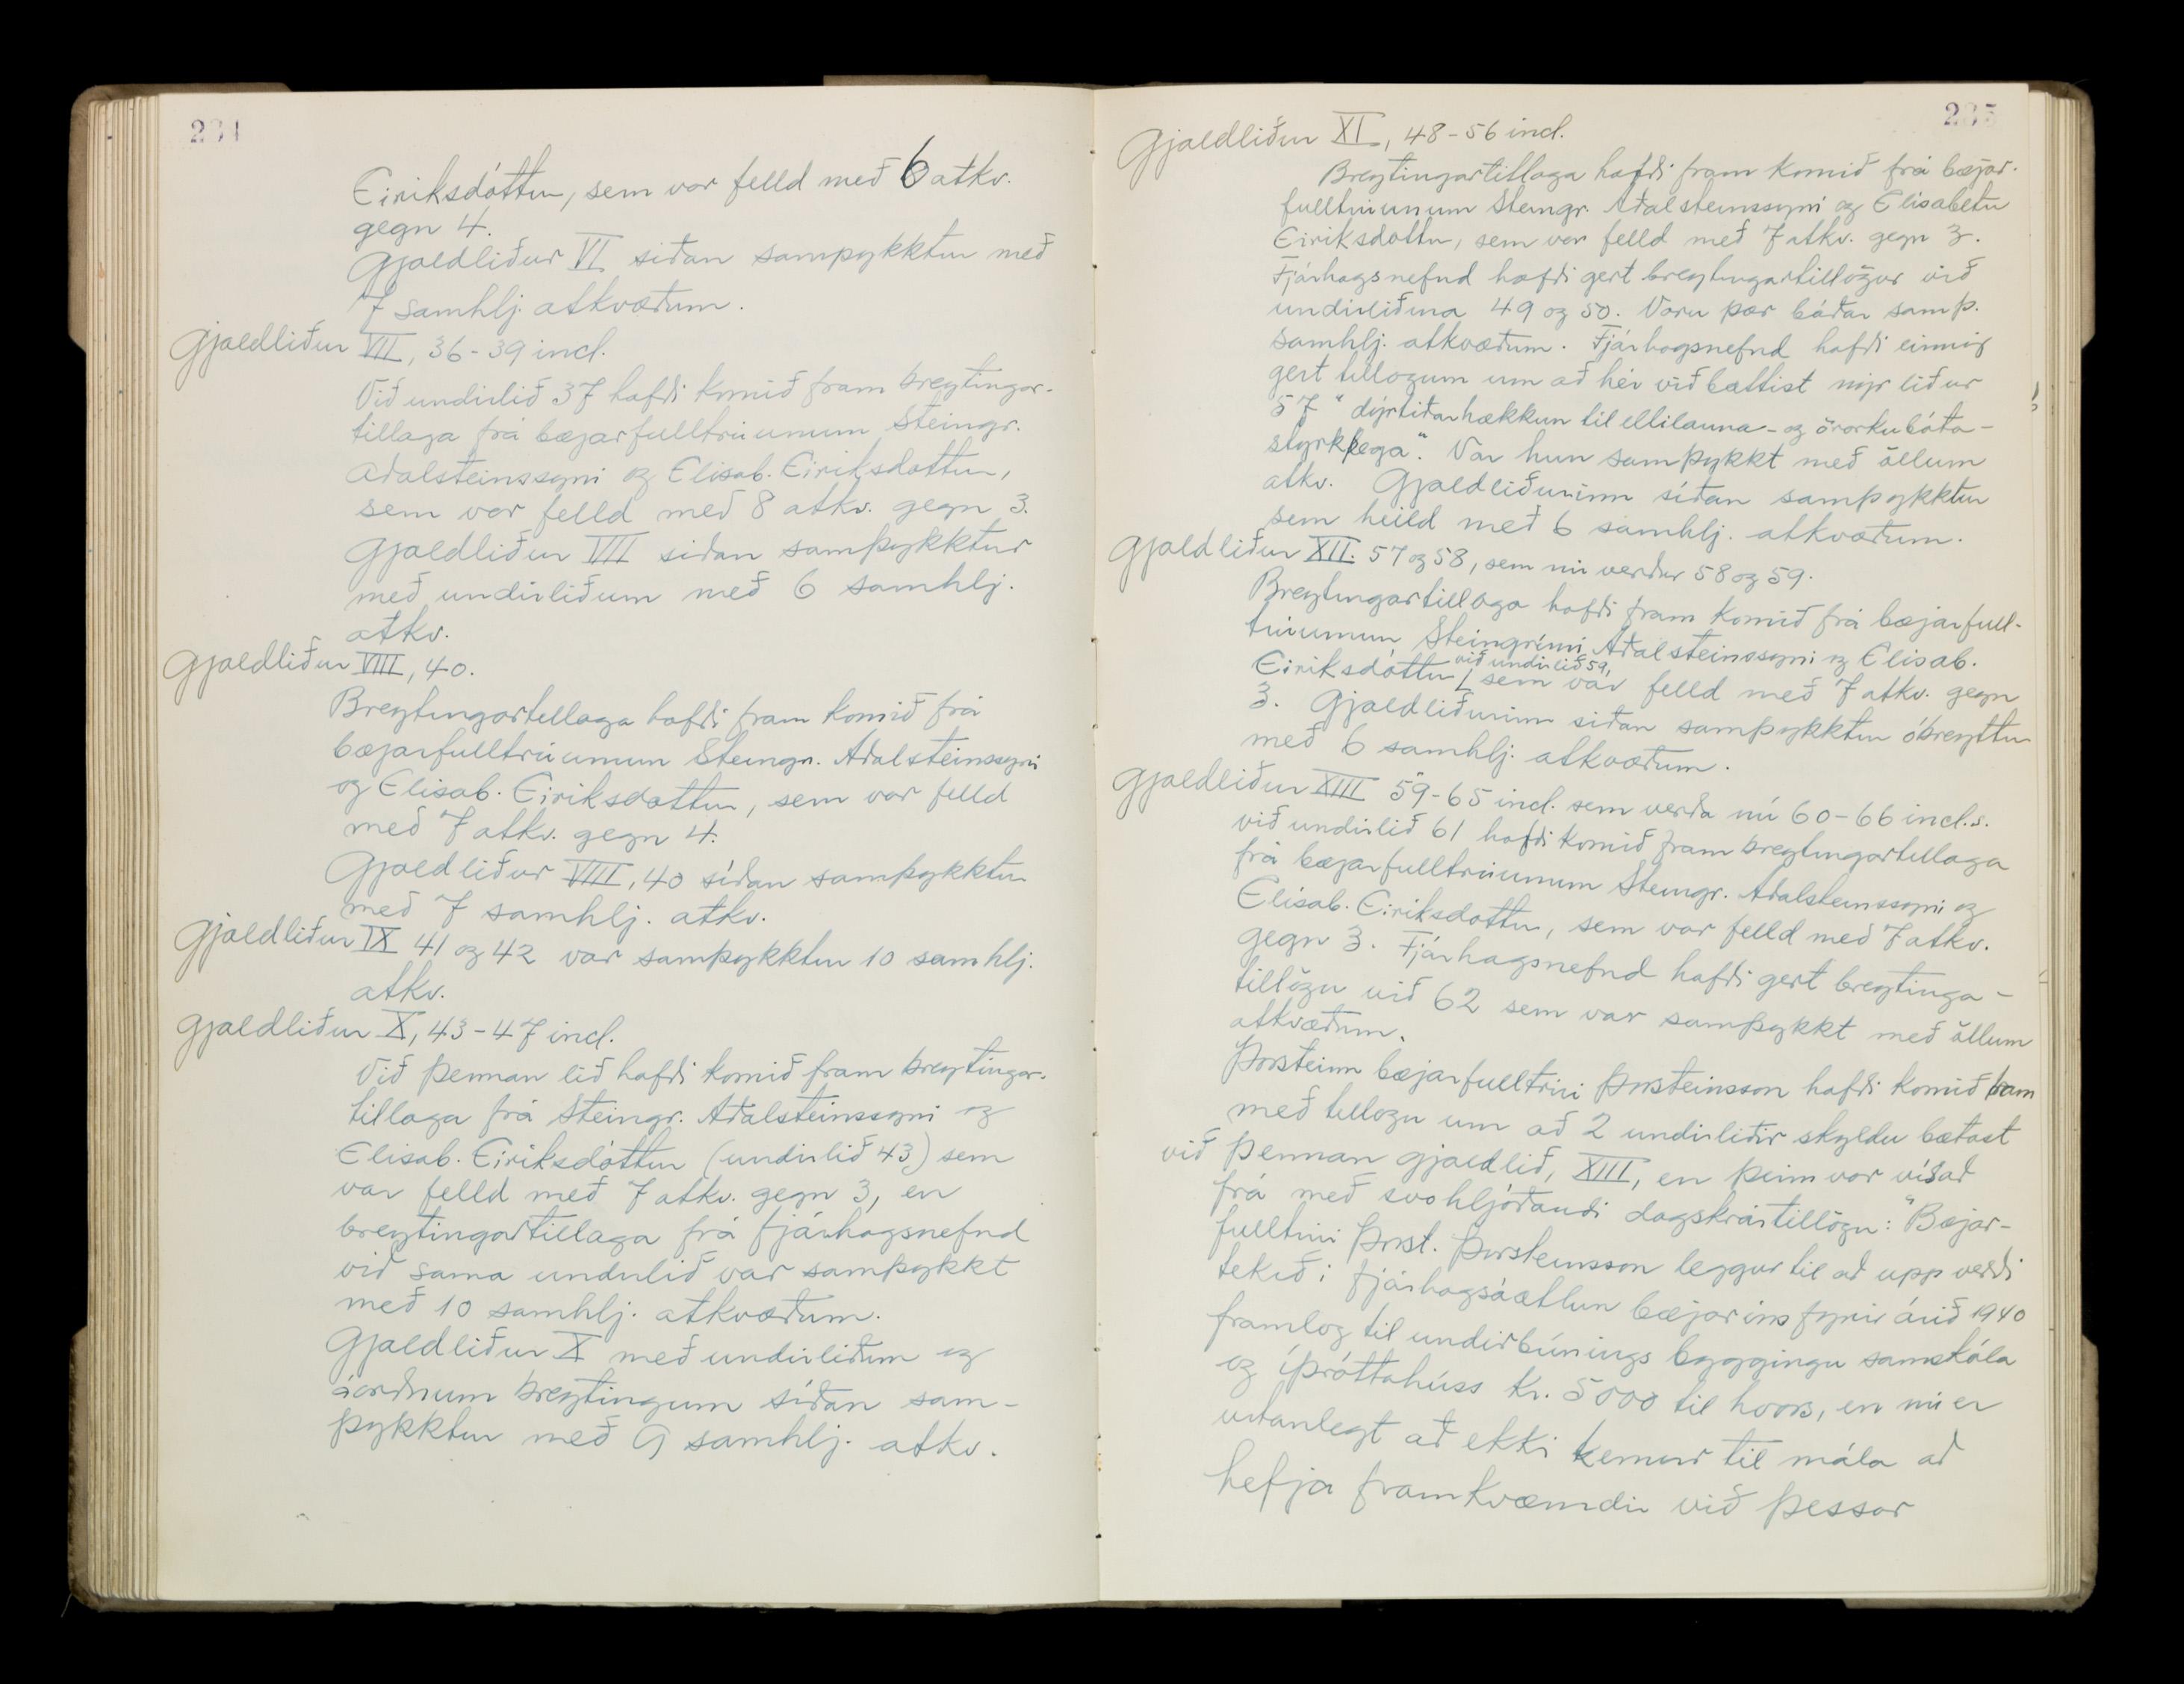 234
Eiriksdóttur, sem var felld með 6 atkv.
gegn 4.
Gjaldliður VI siðan samþykktur með
7 samhlj. atkvæðum.
Gjaldliður VII, 36-39 incl.
Við undirlið 37 hafði komið fram breytingar-
tillaga frá bæjarfulltrúunum Steingr.
Aðalsteinssyni og Elisab. Eiriksdóttur,
sem var felld með 8 atkv. gegn 3.
Gjaldliður VII siðan samþykktur
með undirliðum með 6 samhlj.
atkv.
Gjaldliður VIII, 40.
Breytingartillaga hafði fram komið frá
bæjarfulltrúunum Steingr. Aðalsteinssyni
og Elisab. Eiriksdottur, sem var felld
með 7 atkv. gegn 4.
Gjaldliður VIII, 40 síðan samþykktur
með 7 samhlj. atkv.
Gjaldliður IX 41 og 42 var samþykktur 10 samhlj.
atkv.
Gjaldliður X, 43-47 incl.
Við þennan lið hafði komið fram breytingar-
tillaga frá Steingr. Aðalsteinssyni og
Elisab. Eiriksdóttur (undirlið 43) sem
var felld með 7 atkv. gegn 3, en
breytingartillaga frá fjárhagsnefnd
við sama undirlið var samþykkt
með 10 samhlj. atkvæðum.
Gjaldliður X með undirliðum og
áorðnum breytingum síðan sam-
þykktur með 9 samhlj. atkv.
235
Gjaldliður XI, 48-56 incl.
Breytingartillaga hafði fram komið frá bæjar-
fulltrúunum Steingr. Aðalsteinssyni og Elisabetu
Eiriksdóttur, sem var felld með 7 atkv. gegn 3.
Fjárhagsnefnd hafði gert breytingartillögur við
undirliðina 49 og 50. Voru þær báðar samþ.
samhlj. atkvæðum. Fjárhagsnefnd hafði einnig
gert tillögum um að hér við bættist nýr liður
57 "dýrtiðarhækkun til ellilauna- og örorkubóta-
styrkþega". Var hun samþykkt með öllum
atkv. Gjaldliðurinn síðan samþykktur
sem heild með 6 samhlj. atkvæðum.
Gjaldliður XII. 57 og 58, sem nú verður 58 og 59.
Breytingartillaga hafði fram komið frá bæjarfull-
trúunum Steingrími Aðalsteinssyni og Elisab.
við undirlið 59,
Eiriksdóttur sem var felld með 7 atkv. gegn
3. Gjaldliðurinn siðan samþykktur óbreyttur
með 6 samhlj. atkvæðum.
Gjaldliður XIII 59-65 incl. sem verða nú 60-66 incl.s.
við undirlið 61 hafði komið fram breytingartillaga
frá bæjarfulltrúunum Steingr. Aðalsteinssyni og
Elisab. Eiriksdottur, sem var felld með 7 atkv.
gegn 3. Fjárhagsnefnd hafði gert breytinga-
tillögu við 62 sem var samþykkt með öllum
atkvæðum.
Þorsteinn bæjarfulltrúi Þorsteinsson hafði komið fram
með tillögu um að 2 undirliðir skyldu bætast
við þennan gjaldlið, XIII, en þeim var vísað
frá með svohljóðandi dagskrártillögu: "Bæjar-
fulltrúi Þorst. Þorsteinsson leggur til að upp verði
tekið í fjárhagsáætlun bæjarins fyrir árið 1940
framlög til undirbúnings byggingu samskóla
og íþróttahúss kr. 5000 til hvors, en nú er
vitanlegt að ekki kemur til mála að
hefja framkvæmdir við þessar